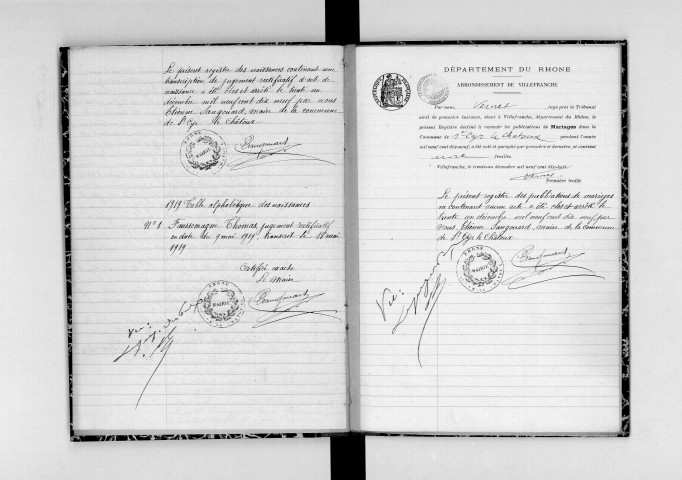 Le présent registre des naissances contenant une
transcription de jugement rectificatif d'acte de
naissance a été clos et arrêté le trente un
décembre mil neuf cent dix neuf par nous
Etienne Sanguard, maire de la commune
de St Cyr le Châtoux
RHONE
MAIRIE
1919 Table alphabétique des naissances
No 1 Thomas, jugement rectificatif
en date du 9 mai 1919, transcrit le 18 mai
1919
Certifié exact
Le Maire
RHONE
MAIRIE
Vu:
DÉPARTEMENT DU RHONE
ARRONDISSEMENT DE VILLEFRANCHE
Par nous, juge près le Tribunal
civil de première instance, séant à Villefranche, département du Rhône, le
présent Registre destiné à recevoir les publications de Mariages dans la
Commune de St Cyr le Chatoux pendant l'année
mil neuf cent dix-neuf, a été coté et paraphé par première et dernière, et contient
feuilles
Villefranche, le trente-un décembre mil neuf cent dix-huit
Première feuille
Le présent registre des publications de mariages
ne contenant aucun acte a été clos et arrêté le
trente un décembre mil neuf cent dix neuf par
nous Etienne Sanguard, maire de la commune
de St Cyr le Châtoux
RHONE
MAIRIE
Vu: